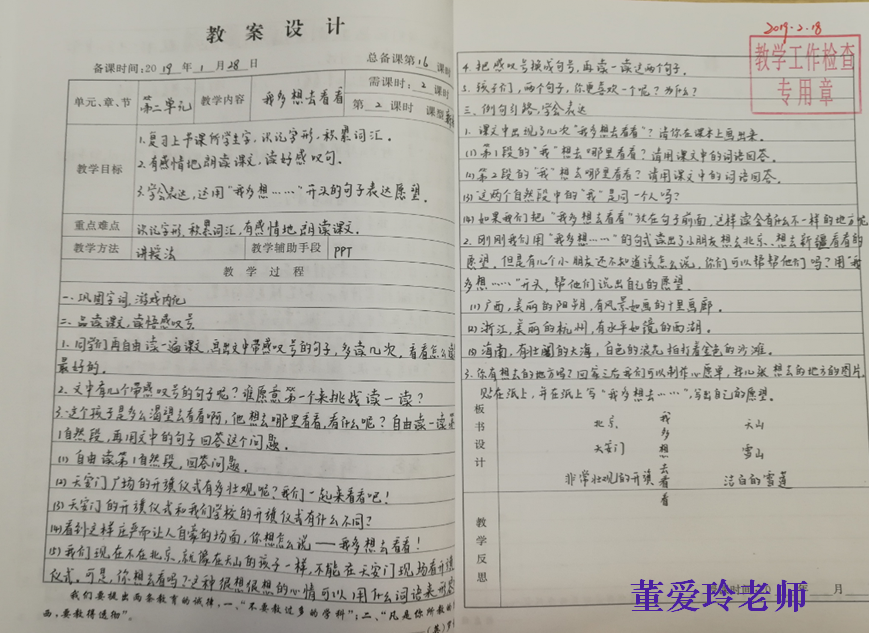 教案设计
备课时间:2019年1月28日
总备课第16课时
单元、章、节 第二单元 教学内容 我多想去看看
需课时:2课时
第2课时 课型
教学目标
1.复习上节课所学生字,识记字形,积累词汇。
2.有感情地朗读课文,读好感叹句。
3.学会表达,运用“我多想……”开头的句子表达愿望。
重点难点 识记字形,积累词汇,有感情地朗读课文。
教学方法 讲授法 教学辅助手段 PPT
教学过程
一、巩固字词,游戏内化
二、品读课文,读悟感叹号
1.同学们再自由读一遍课文,画出文中带感叹号的句子,多读几次,看看怎么读
最好的。
2.文中有几个带感叹号的句子呢?谁愿意第一个来挑战读一读?
3.这个孩子是多么渴望去看看啊,他想去哪里看看,看什么呢?自由读一读第
1自然段,再用文中的句子回答这个问题。
(1)自由读第1自然段,回答问题。
(2)天安门广场的升旗仪式有多壮观呢?我们一起来看看吧!
(3)天安门的升旗仪式和我们学校的升旗仪式有什么不同?
(4)看到这样庄严而让人自豪的场面,你想怎么说——我多想去看看!
(5)我们现在不在北京,就像在天山的孩子一样,不能在天安门现场看升旗
仪式,可是,你想去看吗?这种很想很想的心情可以用什么词语来形容
我们要提出两条教育的诫律,一、“不要教过多的学科”;二、“凡是你所教的
面,要教得透彻”。
2019.2.18
教学工作检查
专用章
4.把感叹号换成句号,再读一读这两个句子。
5.孩子们,两个句子,你更喜欢一个呢?为什么?
三、例句引路,学会表达
1.课文中出现了几次“我多想去看看”?请你在课本上画出来。
(1)第1段的“我”想去哪里看看?请用课文中的词语回答。
(2)第2段的“我”想去哪里看看?请用课文中的词语回答。
(3)这两个自然段中的“我”是同一个人吗?
(4)如果我们把“我多想去看看”放在句子前面,这样读会有什么不一样的地方呢
2.刚刚我们用“我多想……”的句式读出了小朋友想去北京、想去新疆看看的
愿望。但是有几个小朋友还不知道该怎么说,你们可以帮帮他们吗?用“我
多想……”开头,帮他们说出自己的愿望。
(1)广西,美丽的阳朔,有风景如画的十里画廊。
(2)浙江,美丽的杭州,有水平如镜的西湖。
(3)海南,有壮阔的大海,白色的浪花拍打着金色的沙滩。
3.你有想去的地方吗?回答之后我们可以制作心愿单,把几张想去的地方的图片
贴在纸上,并在纸上写“我多想去……”,写出自己的愿望。
板书设计
我多想去看看
北京 天山
天安门 雪山
非常壮观的升旗 洁白的雪莲
教学反思
年 月
董爱玲老师